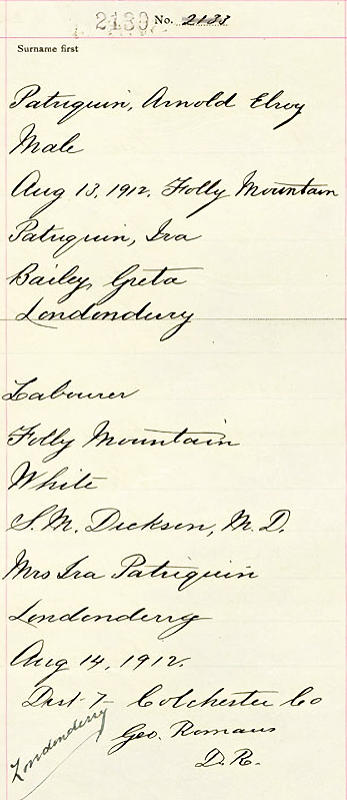 2130 No. 2133
Surname first
Patriquin, Arnold Elroy
Male
Aug 13, 1912. Folly Mountain
Patriquin, Ira
Bailey, Greta
Londonderry
Labourer
Folly Mountain
White
S. M. Dickson, M. D.
Mrs Ira Patriquin
Londonderry
Aug 14, 1912.
Dist. 7 Colchester Co
Londenderry
Geo. Romans
D. R.